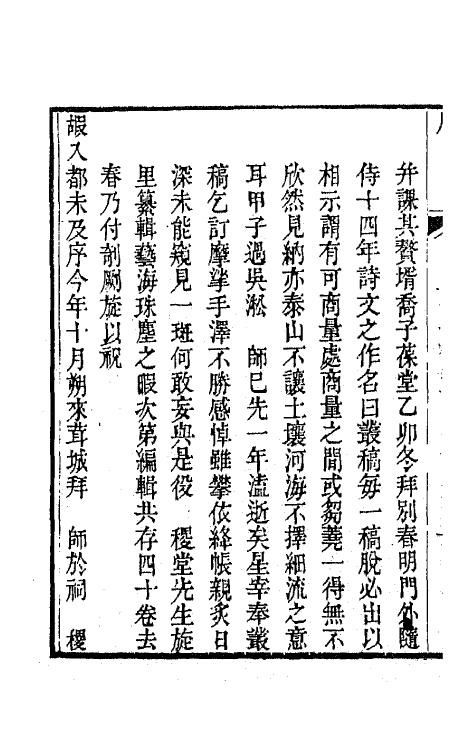 并課其贅壻喬子葆堂乙卯冬拜別春明門外隨
侍十四年詩文之作名曰叢稿每一稿脫必出以
相示謂有可商量處商量之間或芻蕘一得無不
欣然見納亦泰山不讓土壤河海不擇細流之意
耳甲子過吳淞　師已先一年溘逝矣星幸奉叢
稿乞訂摩挲手澤不勝感悼雖攀依絳帳親炙日
深未能窺見一斑何敢妄與是役　稷堂先生旋
里纂輯藝海珠塵之暇次第編輯共存四十卷去
春乃付剞劂旋以祝
嘏入都未及序今年十月朔來茸城拜　師於祠　稷